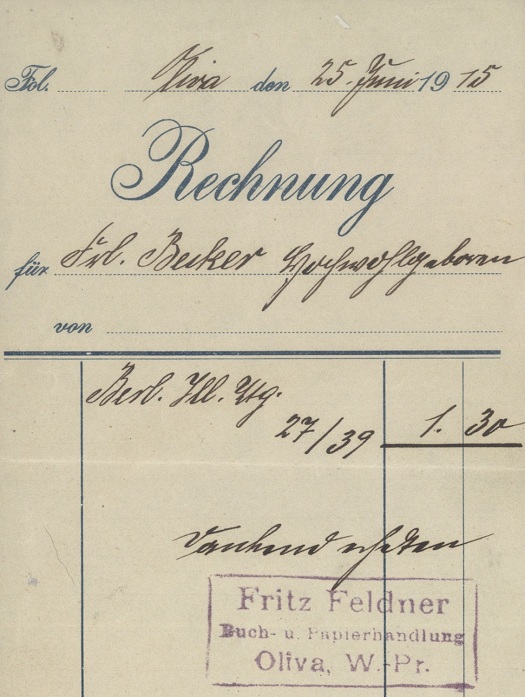 Fol. Oliva den 25. Juni 1915
Rechnung
für Frl. Becker Hochwohlgeboren
von
Berl. Ill. Ztg.
27/39 1. 30
Dankend erhalten
Fritz Feldner
Buch- u. Papierhandlung
Oliva, W.-Pr.